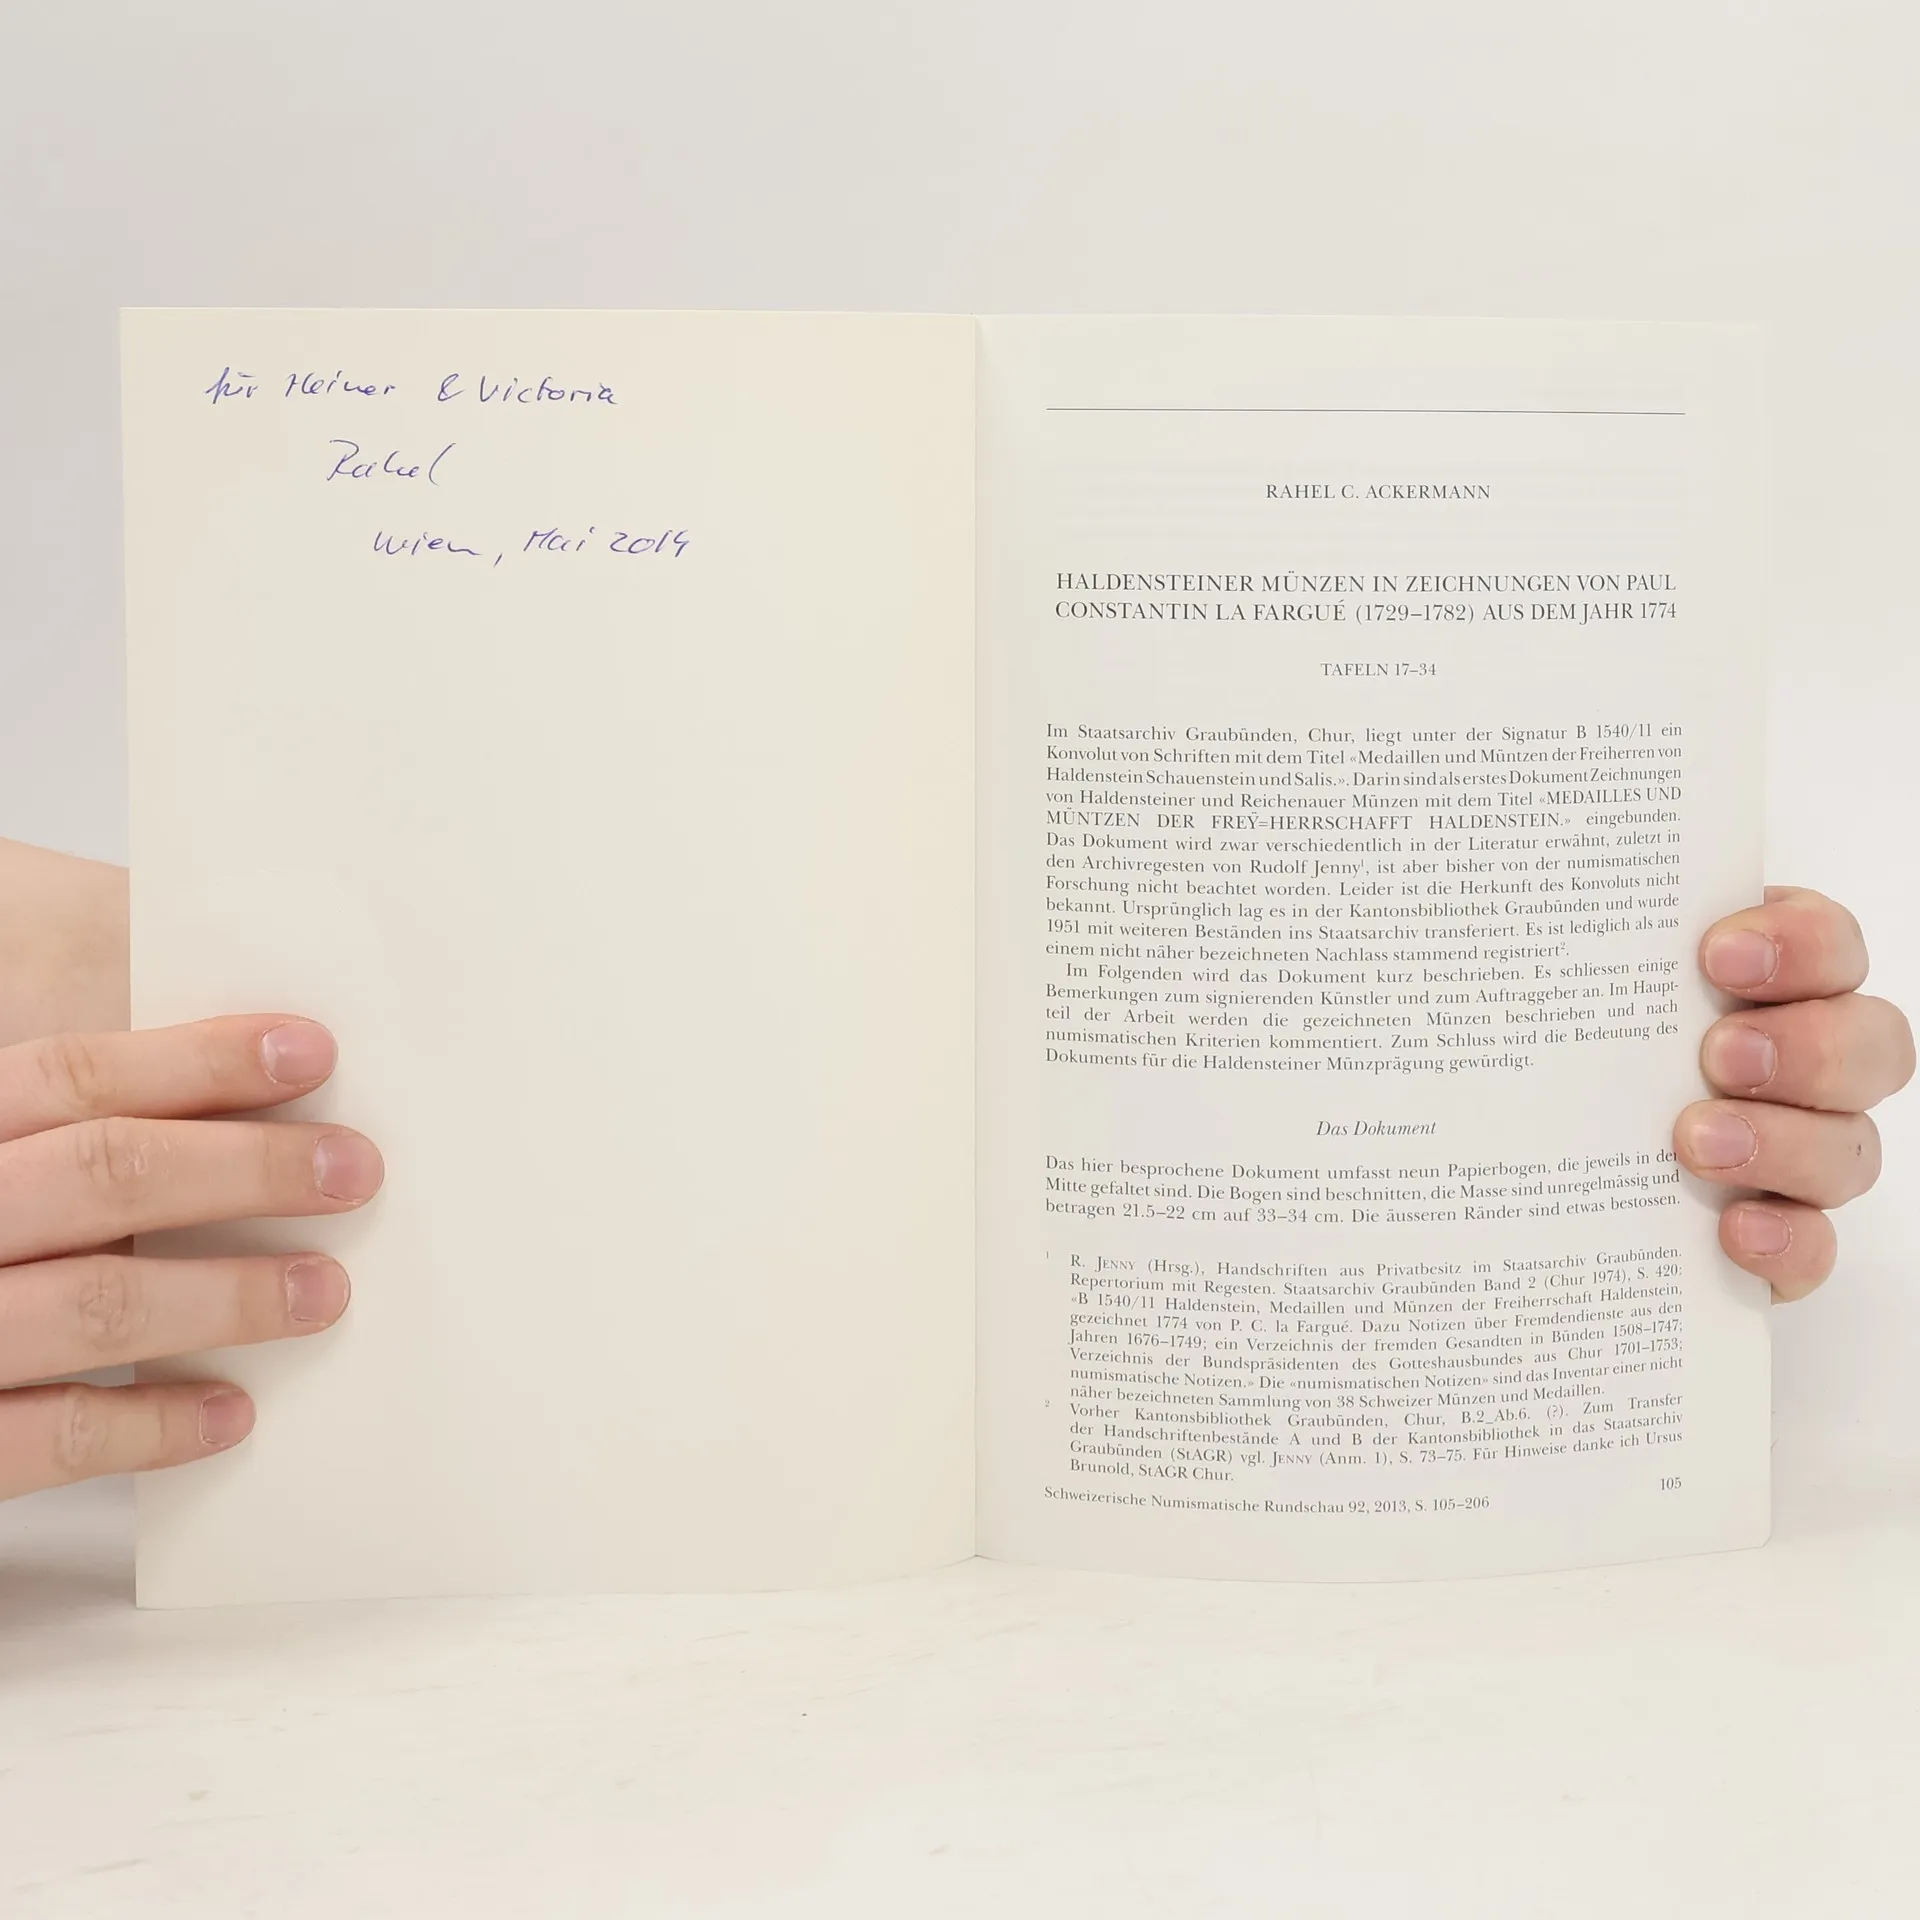 für Heiner & Victoria
Rahel
Wien, Mai 2014
RAHEL C. ACKERMANN
HALDENSTEINER MÜNZEN IN ZEICHNUNGEN VON PAUL
CONSTANTIN LA FARGUÉ (1729–1782) AUS DEM JAHR 1774
TAFELN 17–34
Im Staatsarchiv Graubünden, Chur, liegt unter der Signatur B 1540/11 ein
Konvolut von Schriften mit dem Titel «Medaillen und Müntzen der Freiherren von
Haldenstein Schauenstein und Salis.». Darin sind als erstes Dokument Zeichnungen
von Haldensteiner und Reichenauer Münzen mit dem Titel «MEDAILLES UND
MÜNTZEN DER FREŸ=HERRSCHAFFT HALDENSTEIN.» eingebunden.
Das Dokument wird zwar verschiedentlich in der Literatur erwähnt, zuletzt in
den Archivregesten von Rudolf Jenny¹, ist aber bisher von der numismatischen
Forschung nicht beachtet worden. Leider ist die Herkunft des Konvoluts nicht
bekannt. Ursprünglich lag es in der Kantonsbibliothek Graubünden und wurde
1951 mit weiteren Beständen ins Staatsarchiv transferiert. Es ist lediglich als aus
einem nicht näher bezeichneten Nachlass stammend registriert².
Im Folgenden wird das Dokument kurz beschrieben. Es schliessen einige
Bemerkungen zum signierenden Künstler und zum Auftraggeber an. Im Haupt-
teil der Arbeit werden die gezeichneten Münzen beschrieben und nach
numismatischen Kriterien kommentiert. Zum Schluss wird die Bedeutung des
Dokuments für die Haldensteiner Münzprägung gewürdigt.
Das Dokument
Das hier besprochene Dokument umfasst neun Papierbogen, die jeweils in der
Mitte gefaltet sind. Die Bogen sind beschnitten, die Masse sind unregelmässig und
betragen 21.5–22 cm auf 33–34 cm. Die äusseren Ränder sind etwas bestossen.
1 R. JENNY (Hrsg.), Handschriften aus Privatbesitz im Staatsarchiv Graubünden.
Repertorium mit Regesten. Staatsarchiv Graubünden Band 2 (Chur 1974), S. 420:
«B 1540/11 Haldenstein, Medaillen und Münzen der Freiherrschaft Haldenstein,
gezeichnet 1774 von P. C. la Fargué. Dazu Notizen über Fremdendienste aus den
Jahren 1676–1749; ein Verzeichnis der fremden Gesandten in Bünden 1508–1747;
Verzeichnis der Bundspräsidenten des Gotteshausbundes aus Chur 1701–1753;
numismatische Notizen.» Die «numismatischen Notizen» sind das Inventar einer nicht
näher bezeichneten Sammlung von 38 Schweizer Münzen und Medaillen.
2 Vorher Kantonsbibliothek Graubünden, Chur, B.2_Ab.6. (?). Zum Transfer
der Handschriftenbestände A und B der Kantonsbibliothek in das Staatsarchiv
Graubünden (StAGR) vgl. JENNY (Anm. 1), S. 73–75. Für Hinweise danke ich Ursus
Brunold, StAGR Chur.
105
Schweizerische Numismatische Rundschau 92, 2013, S. 105–206